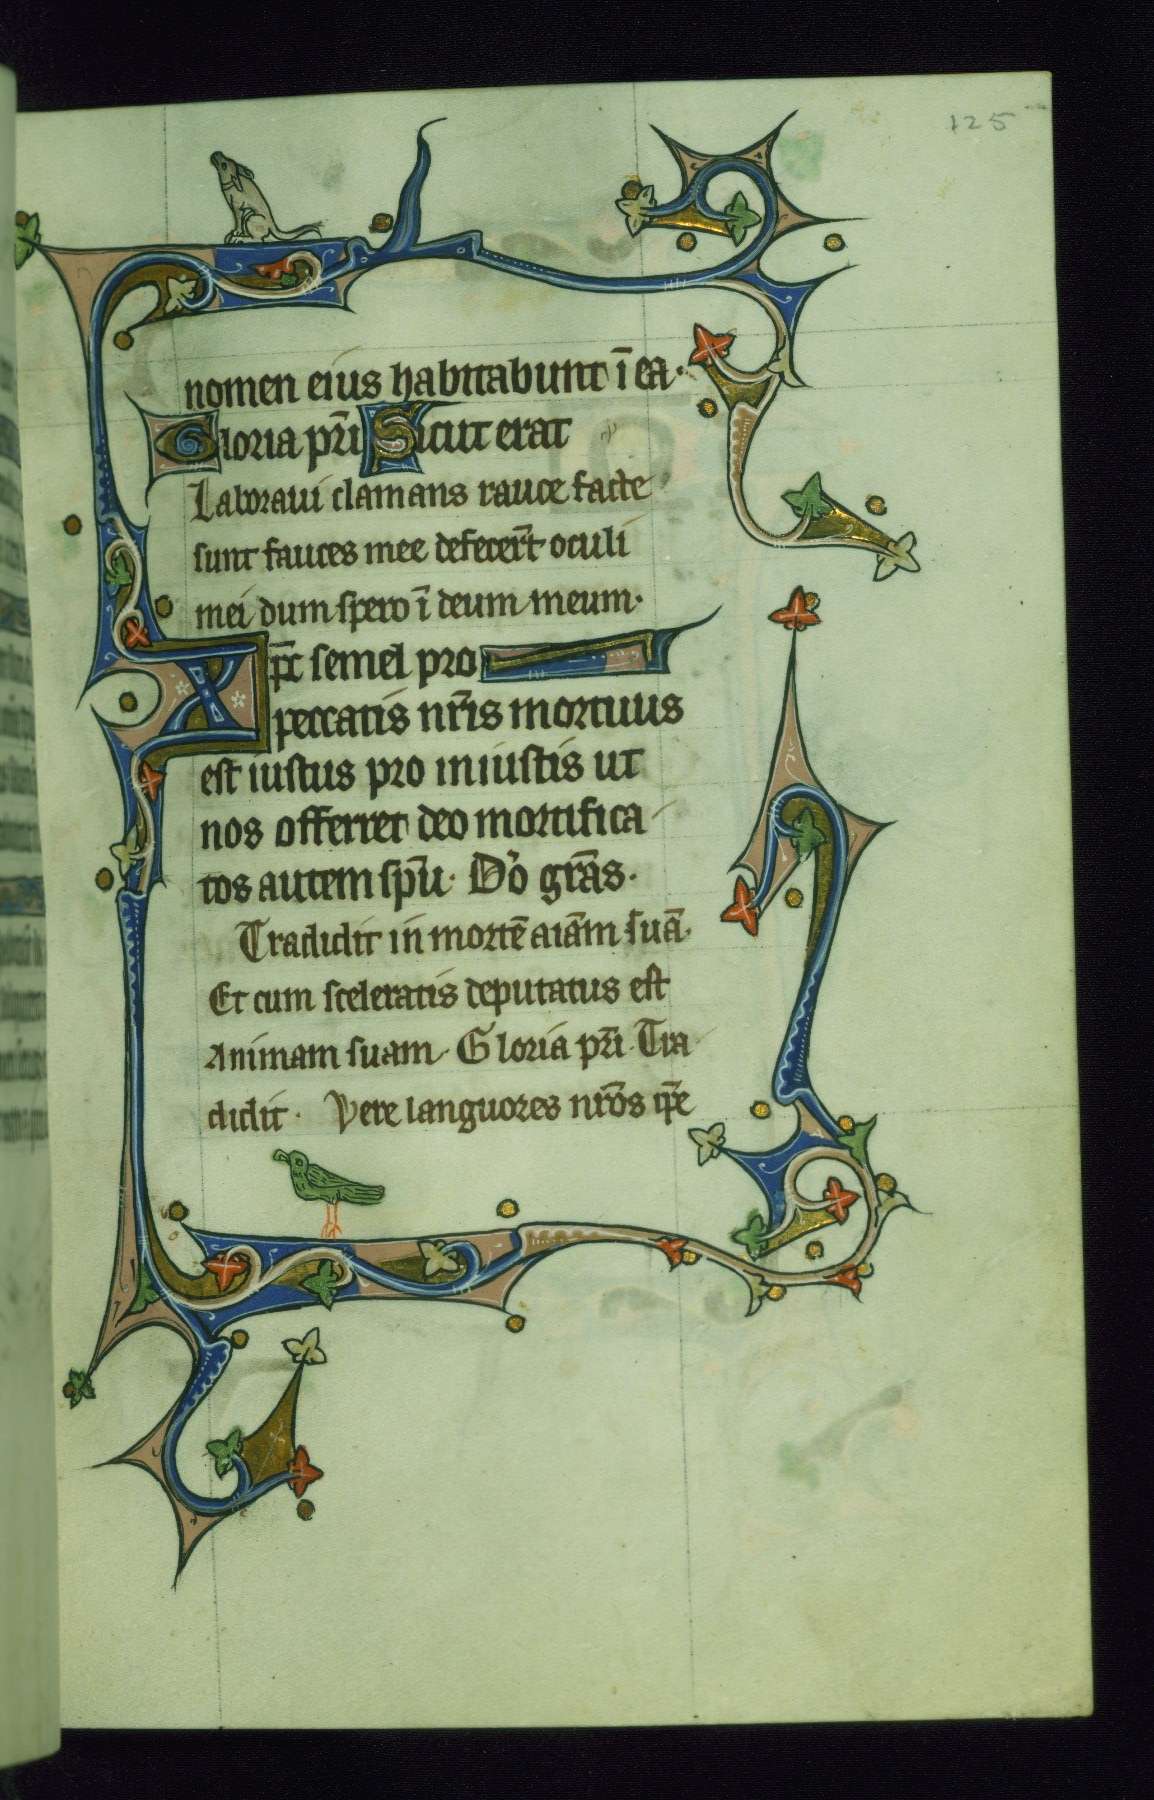 125
nomen eius habitabunt ī ea·
Gloria pr̄i Sicut erat
Laboraui clamans rauce facte
sunt fauces mee defecer̄t oculi
mei dum spero ī deum meum·
Xp̄c semel pro
peccatis nr̄is mortuus
est iustus pro iniustis ut
nos offerret deo mortifica
tos autem sp̄u· Do gr̄as·
Tradidit in mortē aīam suā·
Et cum sceleratis deputatus est
Animam suam· Gloria pr̄i· Tra
didit· Vere languores nr̄os ip̄e